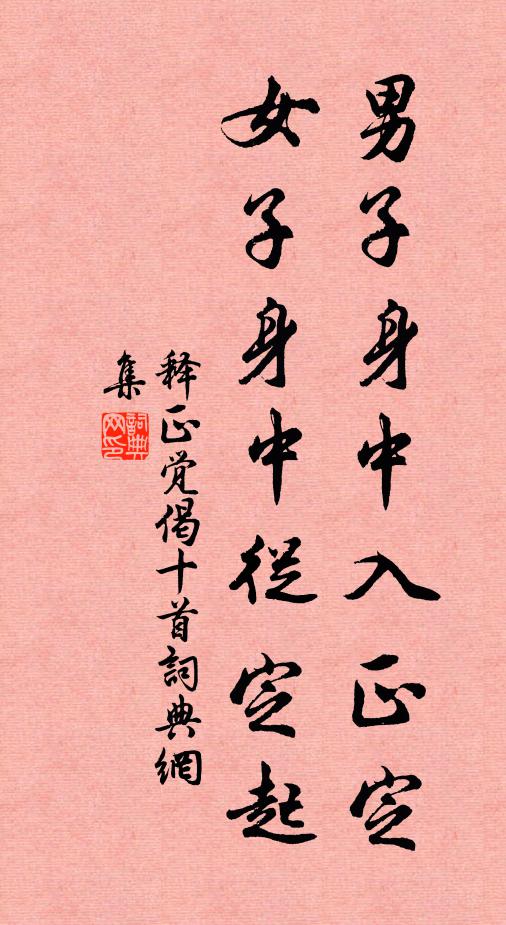 男子身中入正定
女子身中從定起
释正觉偈十首詞典網
集
詞典網印